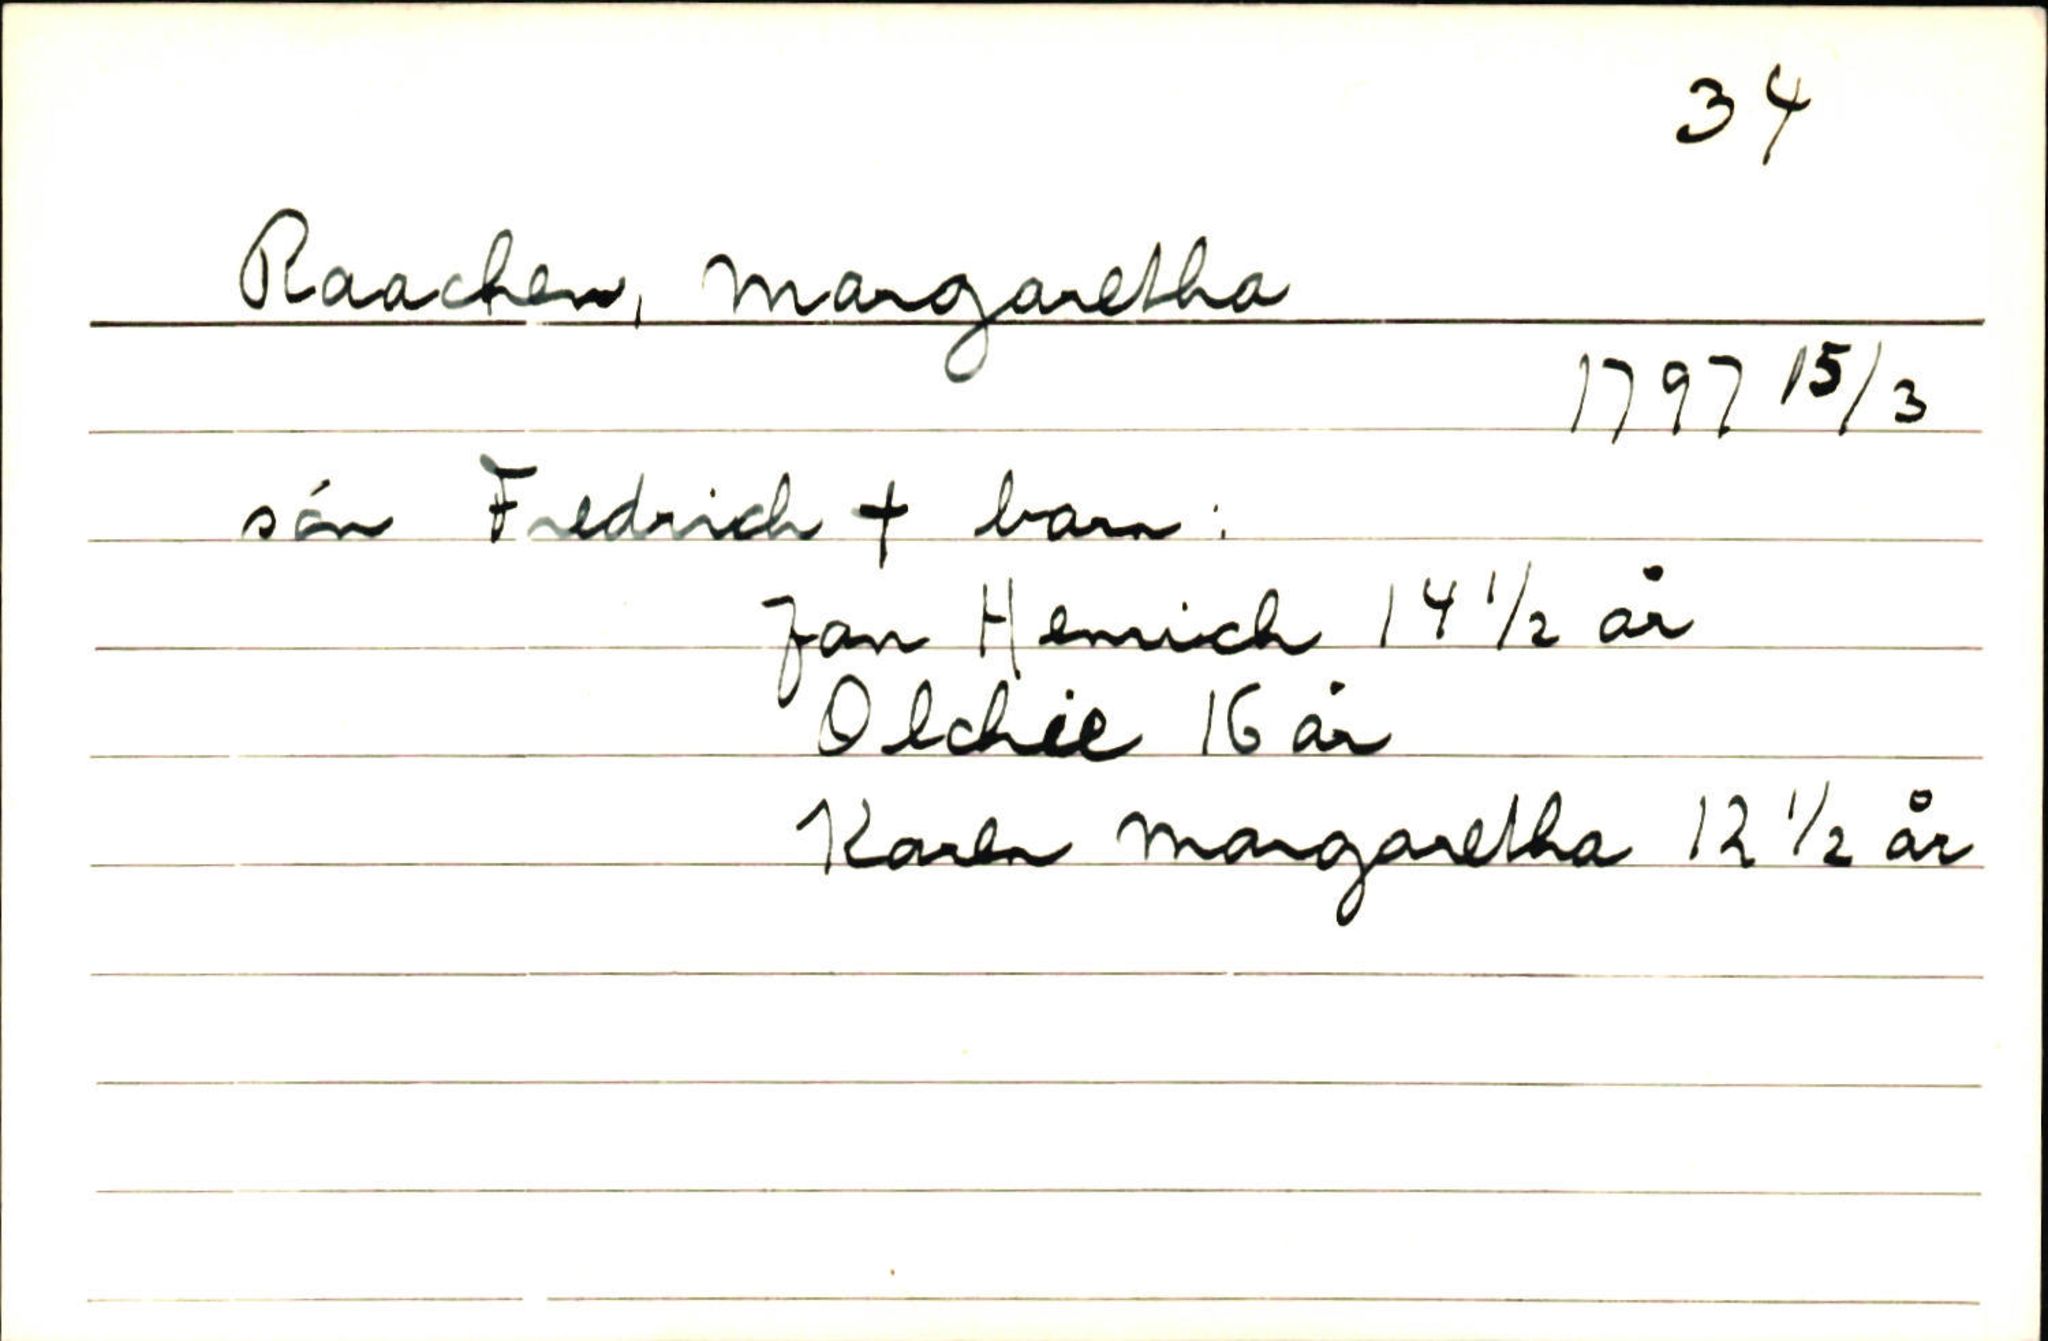 34
Raachen, Margaretha
1797 15/3
són Fredrich + barn:
Jan Henrich 14 1/2 år
Olchie 16 år
Karen Margaretha 12 1/2 år